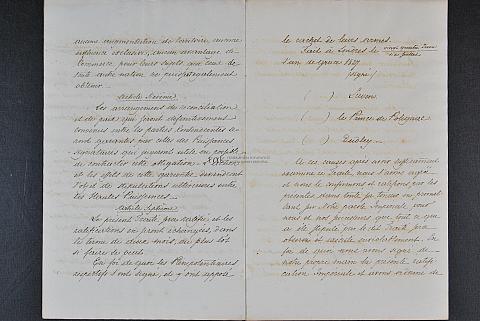 aucune augmentation de territoire, aucune
influence exclusive, aucun avantage de
Commerce pour leurs sujets, que ceux de
toute autre nation ne puissent également
obtenir.
Article Sixième
Les arrangemens de réconciliation
et de paix qui seront définitivement
convenus entre les parties contendantes se
ront garantis par celles des Puissances
Signataires qui jugeront utile ou possible
de contracter cette obligation.
et les effets de cette garantie deviendront
l'objet de stipulations ultérieures entre
les Hautes Puissances.
Article Septième
Le présent Traité sera ratifié et les
ratifications en seront échangées, dans
le terme de deux mois, ou plus tôt
si faire se peut.
En foi de quoi les Plénipotentiaires
respectifs l'ont signé, et y ont apposé
le cachet de leurs armes.
Fait à Londres le
Juillet
l'an de grace 1827
(signé)
( ) Lieven
( ) le Prince de Polignac
( ) Dudley
A ces causes après avoir suffisamment
examiné ce Traité, nous l'avons agréé
et nous le confirmons et ratifions par les
présentes dans toute sa teneur en promet
tant sur notre parole Impériale pour
nous et nos successeurs que tout ce qui
a été stipulé par le dit Traité sera
observé et exécuté inviolablement. En
foi de quoi nous avons signé de
notre propre main la présente ratifi
cation Impériale et avons ordonné de